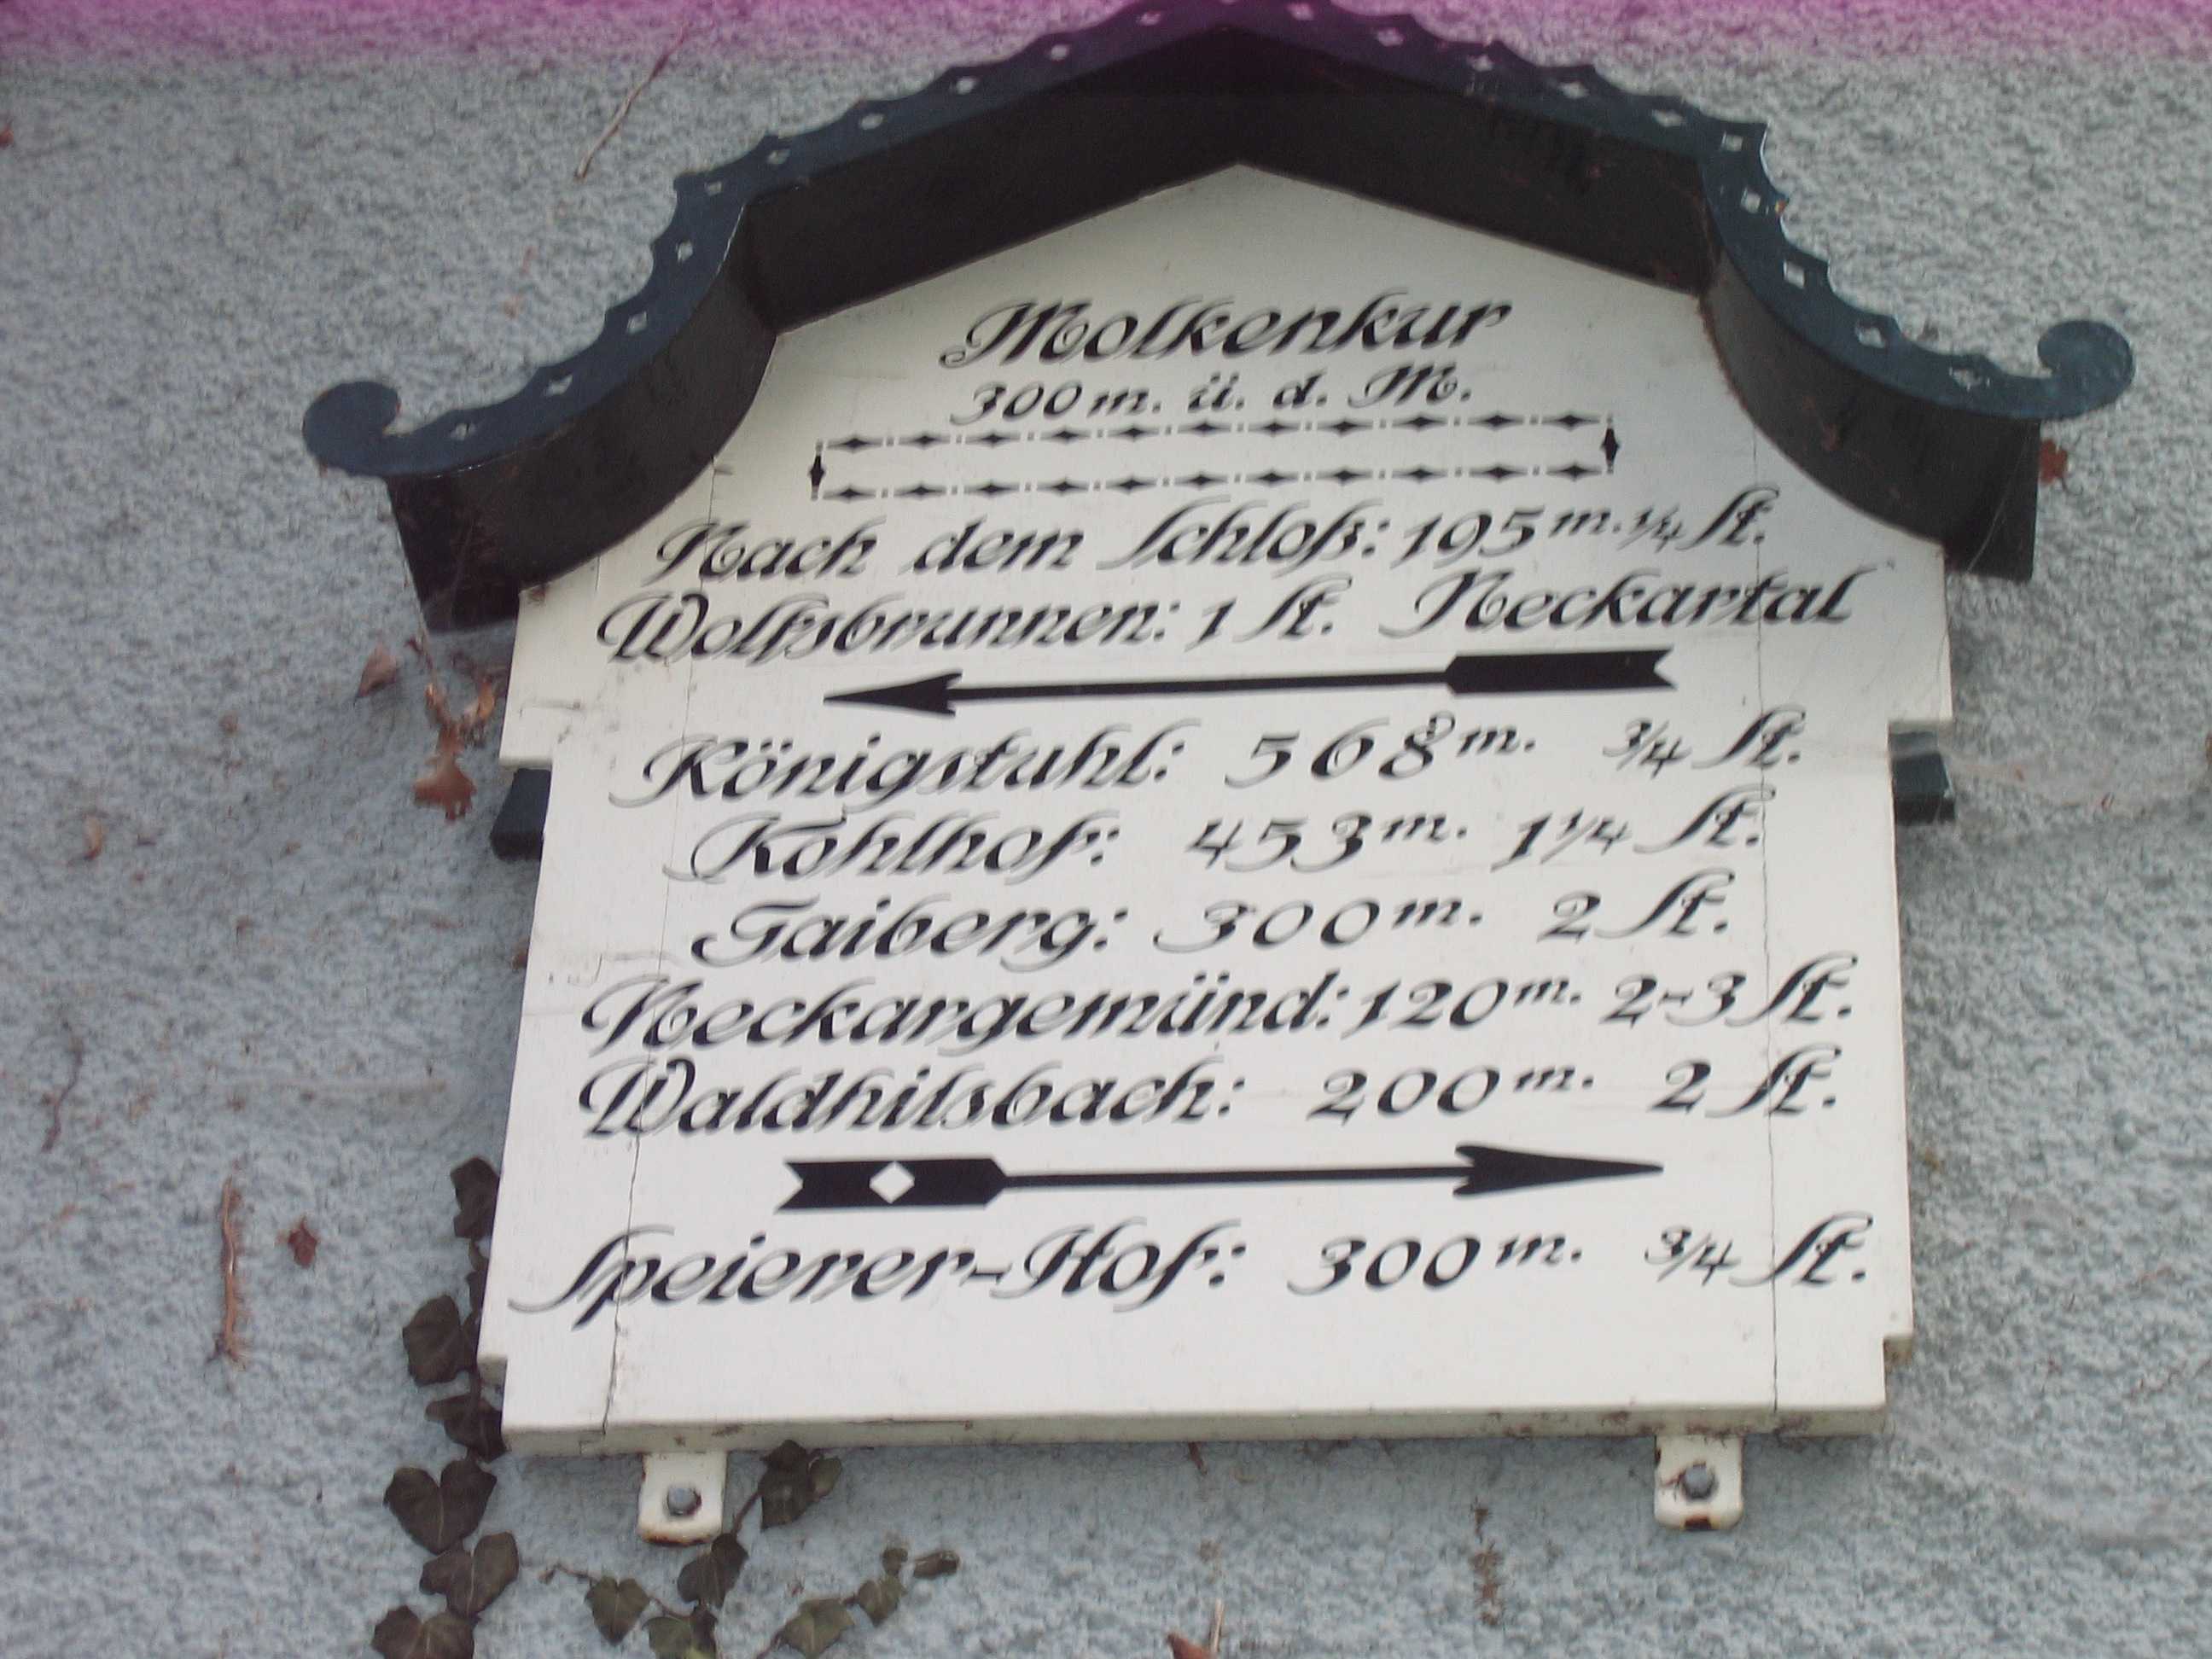 Molkenkur
300 m. ü. d. M.
Nach dem Schloß: 195 m. 1/4 St.
Wolfsbrunnen: 1 St. Neckartal
Königstuhl: 568 m. 3/4 St.
Kohlhof: 453 m. 1 1/4 St.
Gaiberg: 300 m. 2 St.
Neckargemünd: 120 m. 2-3 St.
Waldhilsbach: 200 m. 2 St.
Speierer-Hof: 300 m. 3/4 St.